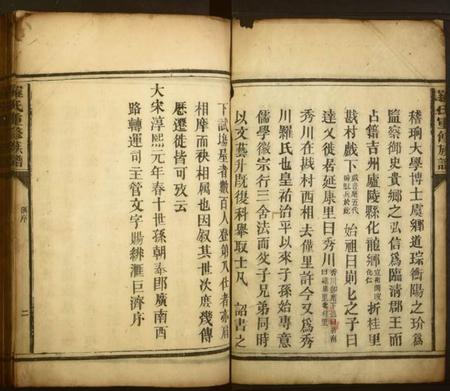 稽珦大學博士虞鄉道琮衡陽之玠為
監察御史貴鄉之弘信為臨清郡王而
占籍吉州廬陵縣化龍鄉折桂里
戢村戲下始祖曰則七之子曰
達又徙者延康里曰秀川
秀川在戢村西相去僅里許今又為秀
川羅氏也皇祐治平以來子孫始專意
儒學徽宗行三舍法而癸子兄弟同時
以文藝升既後科舉取士凡詔書之
下試場星者數百人登第入仕者亦肩
相摩而秧相屬也因叙其世次庶幾傳
歷遷徙皆可攷云
大宋淳熙元年春十世孫朝奉郎廣南西
路轉運司主管文字賜緋滙巨濟序
羅氏重修族譜
舊序
二
羅氏重修族譜